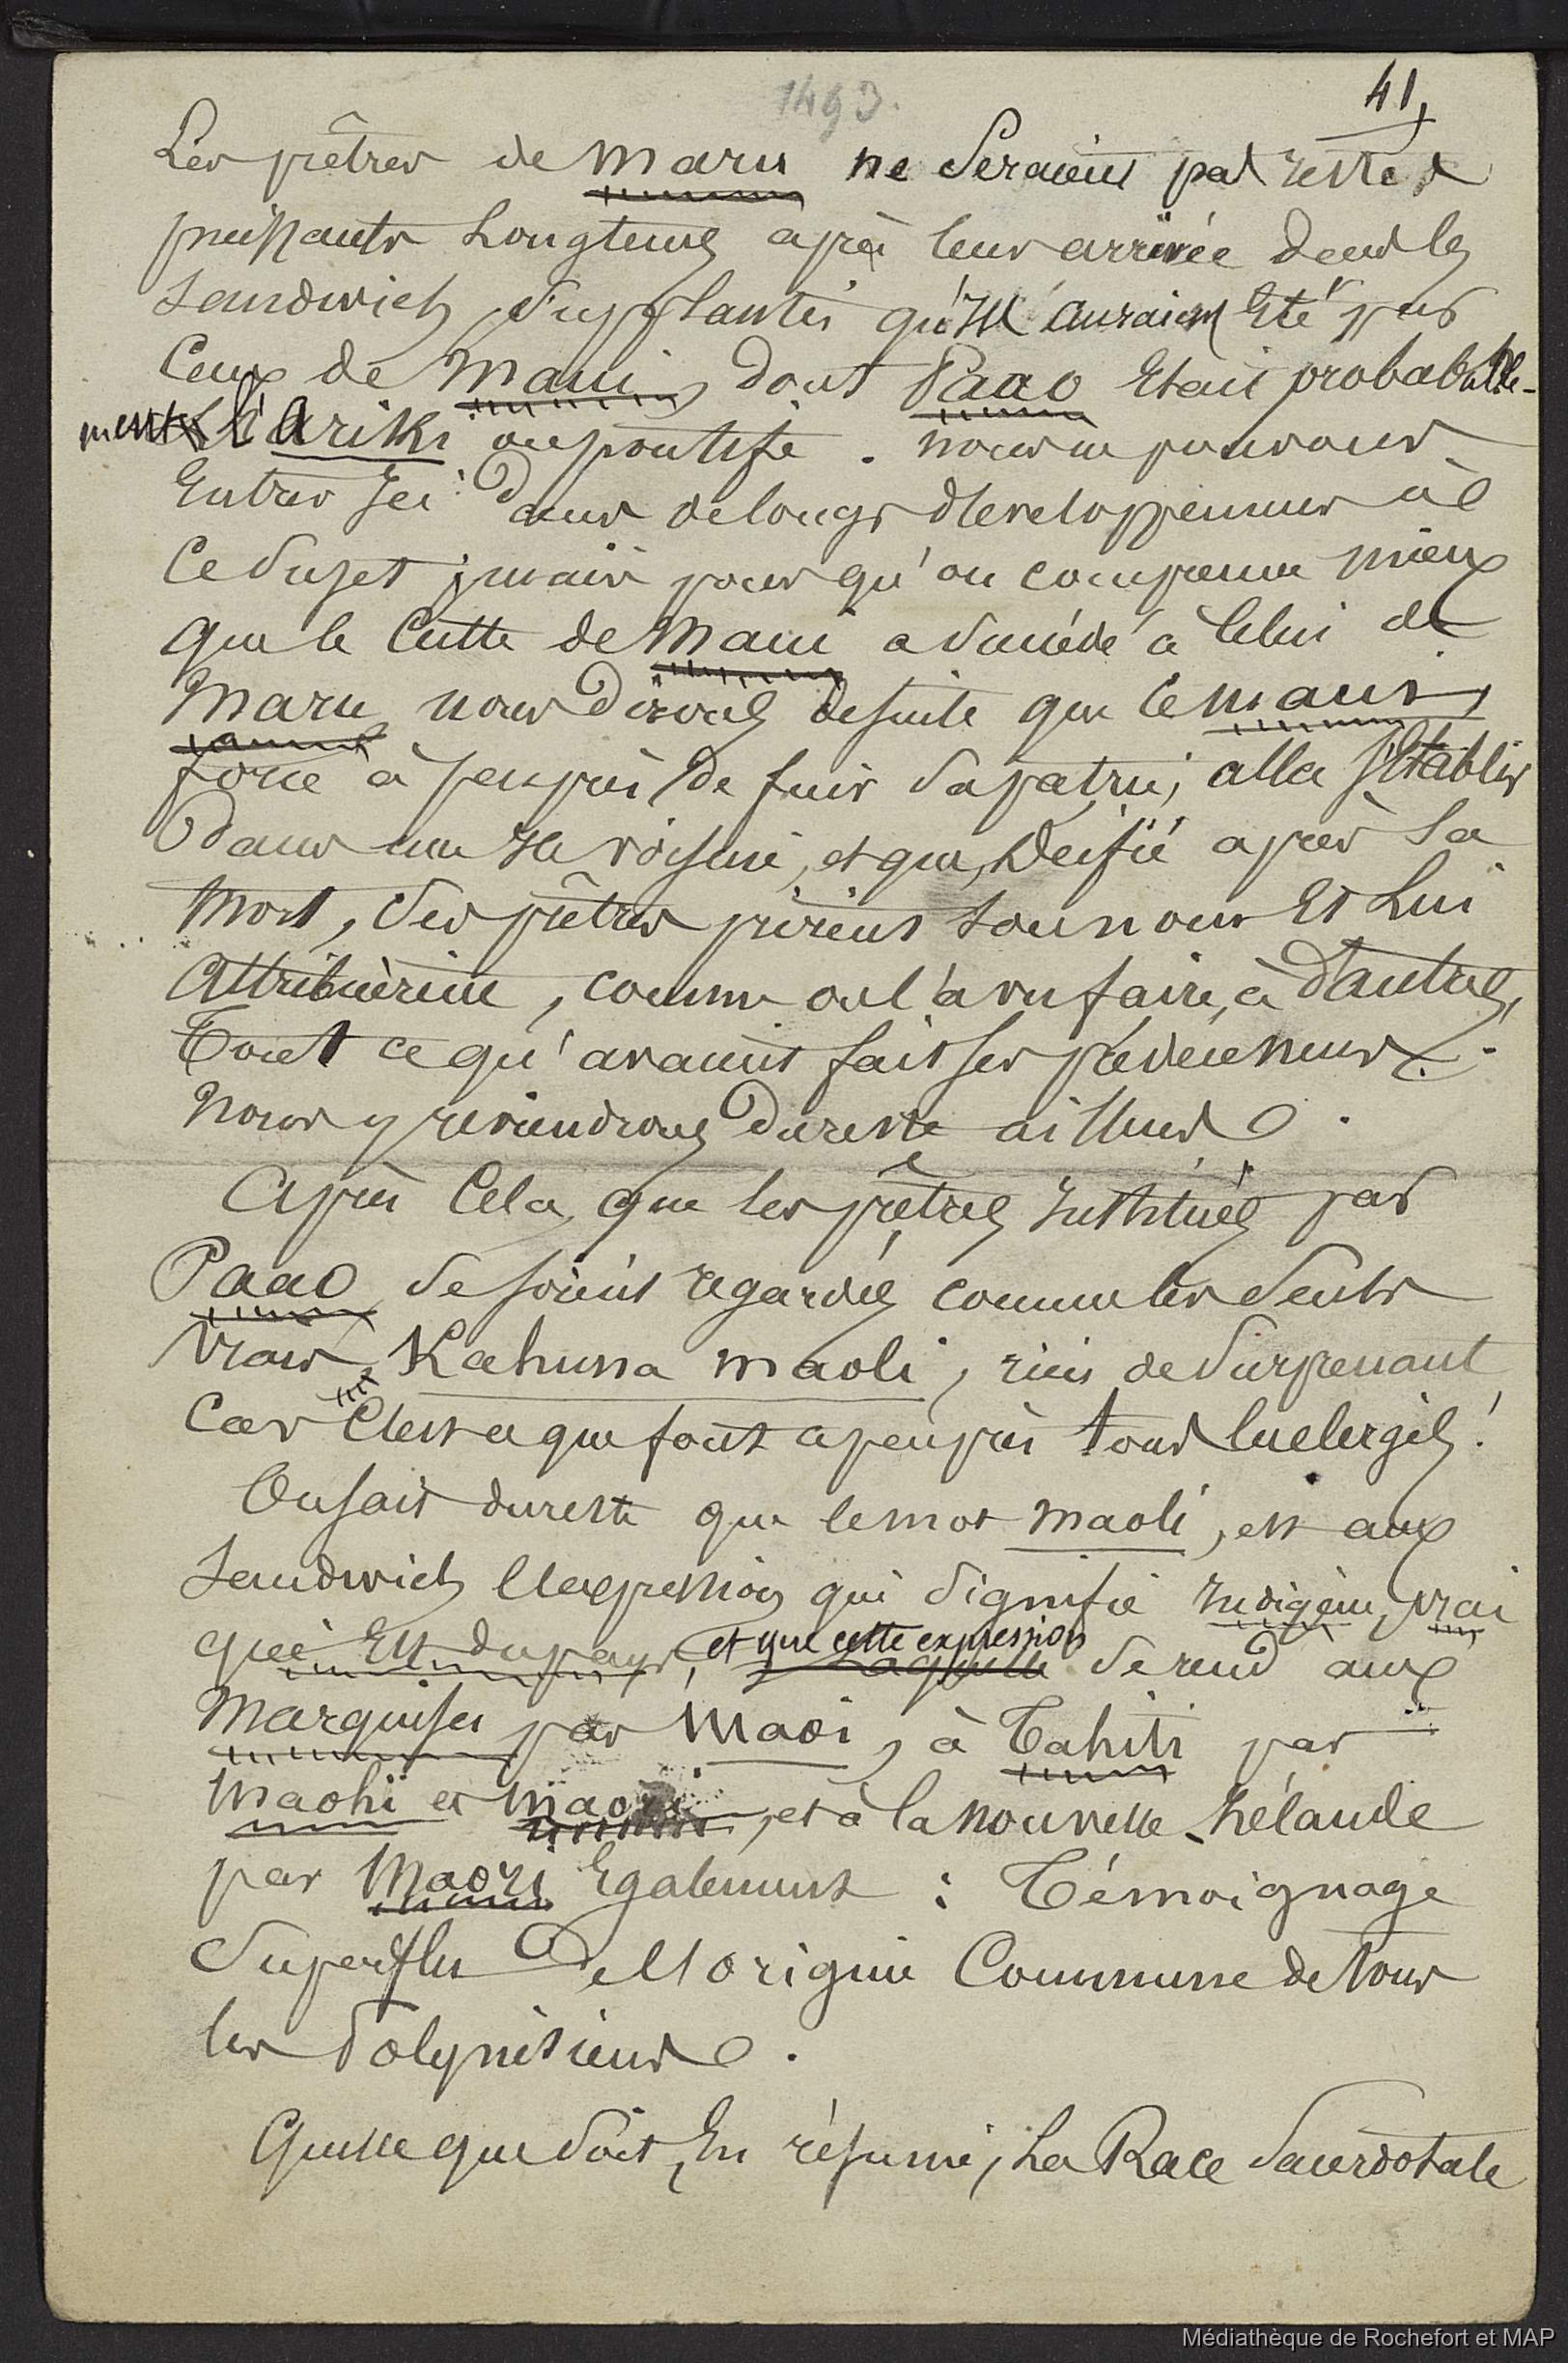 1493.
41,
Les prêtres de Maru ne seraient pas restés
puissants longtems après leur arrivée dans les
Sandwich, supplantés qu'ils auraient été par
ceux de Maui, dont Paao était probable-
ment l'Ariki ou pontife. nous ne pouvons
entrer ici dans de longs développemens à
ce sujet ; mais pour qu'on comprenne mieux
que le culte de Maui a succédé à celui de
Maru nous dirons de suite que ce Maui,
forcé à peu près de fuir sa patrie, alla s'établir
dans une île voisine, et que, Déifié après sa
mort, ses prêtres prirent son nom et lui
attribuèrent, comme on l'a vu faire, à d'autres,
Tout ce qu'avaient fait ses prédécesseurs.
Nous y reviendrons du reste ailleurs.
Après cela, que les prêtres institués par
Paao se soient regardés comme les seuls
vrais Kahuna maoli, rien de surprenant
car c'est ce que font à peu près tous les clergés !
On sait du reste que le mot maoli, est aux
Sandwich l'expression qui signifie indigène, vrai
qui est du pays, et que cette expression se rend aux
Marquises par Maoi, à Tahiti par
Maohi et Maori, et à la Nouvelle-Zélande
par Maori également : Témoignage
superflu de l'origine commune de tous
les Polynésiens.
Quelle que soit, en résumé, la Race sacerdotale
Médiathèque de Rochefort et MAP